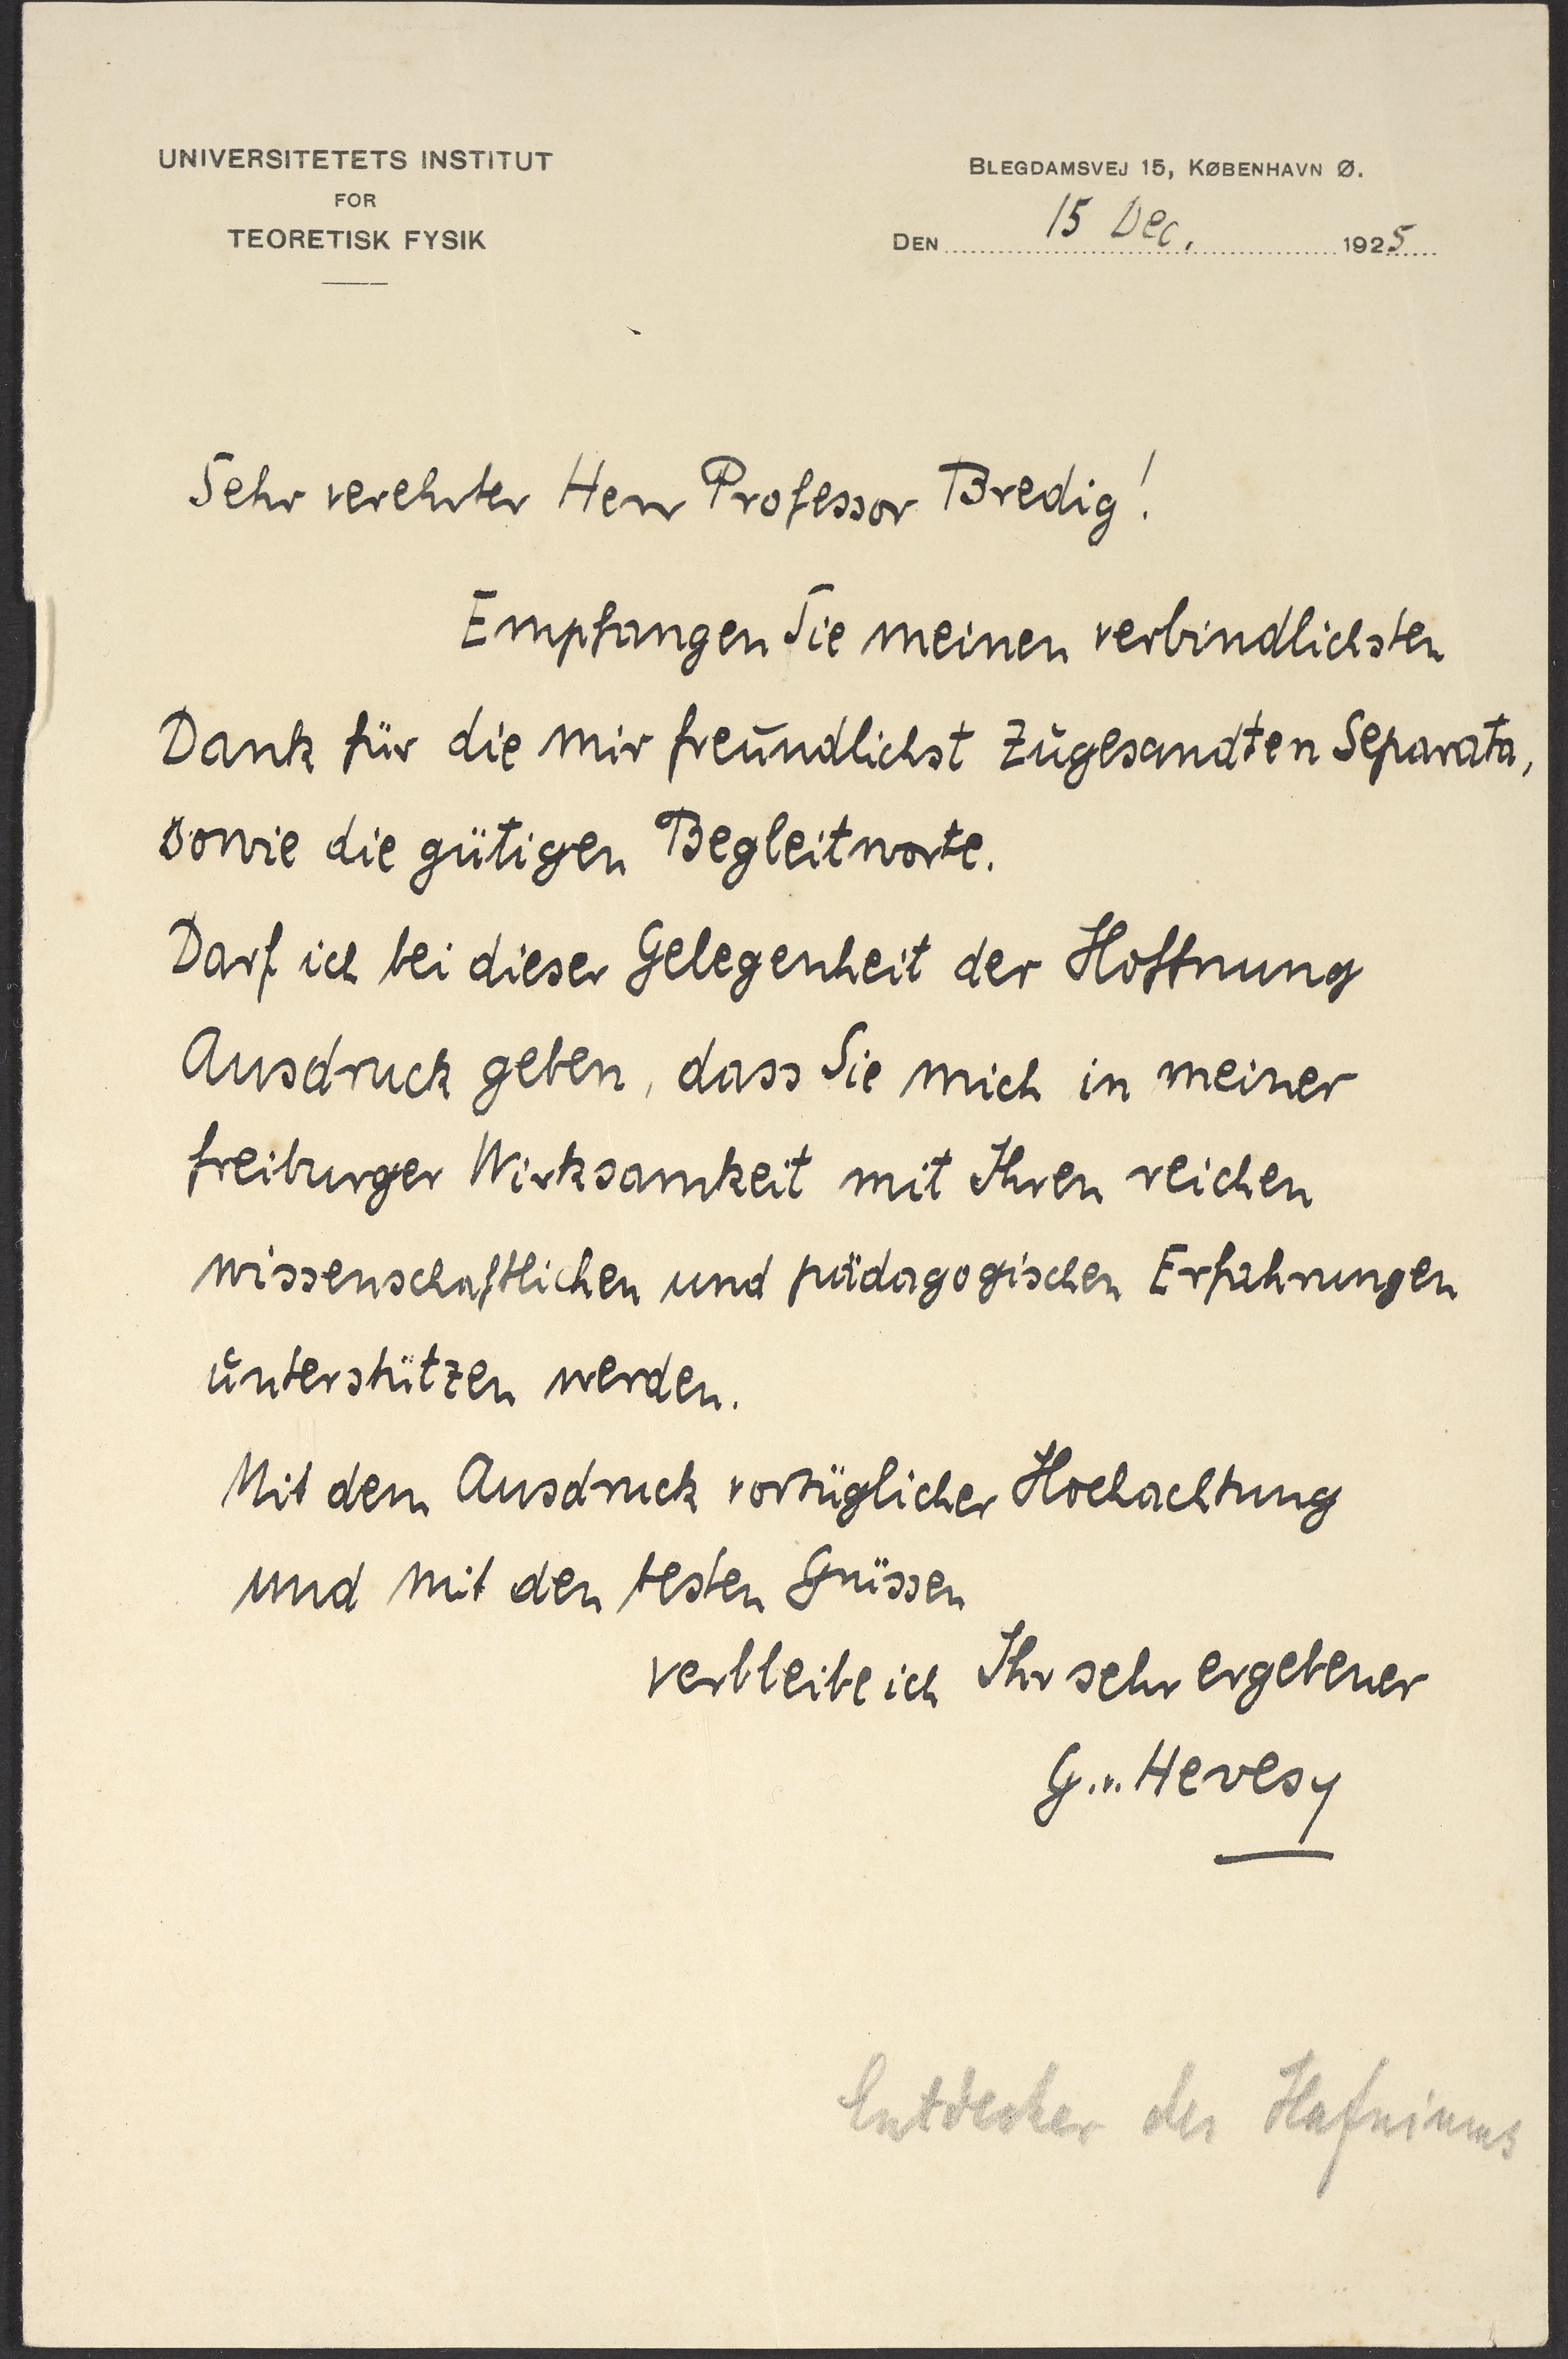 UNIVERSITETETS INSTITUT
FOR
TEORETISK FYSIK
BLEGDAMSVEJ 15, KØBENHAVN Ø.
DEN 15 Dec. 1925
Sehr verehrter Herr Professor Bredig!
Empfangen Sie meinen verbindlichsten
Dank für die mir freundlichst zugesandten Separata,
sowie die gütigen Begleitworte.
Darf ich bei dieser Gelegenheit der Hoffnung
Ausdruck geben, dass Sie mich in meiner
freiburger Wirksamkeit mit Ihren reichen
wissenschaftlichen und pädagogischen Erfahrungen
unterstützen werden.
Mit dem Ausdruck vorzüglicher Hochachtung
und mit den besten Grüssen
verbleibe ich Ihr sehr ergebener
G. v. Hevesy
Entdecker des Hafniums